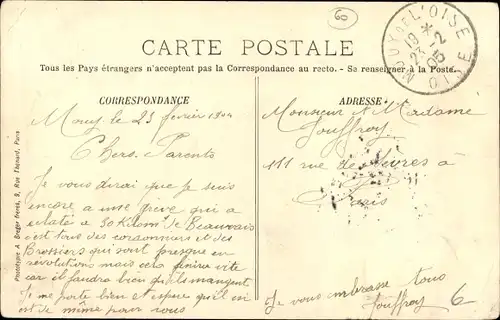 60
CARTE POSTALE
Tous les Pays étrangers n'acceptent pas la Correspondance au recto. - Se renseigner à la Poste.
MOUY DE L'OISE
19 *
23 - 2
05
OISE
CORRESPONDANCE
ADRESSE
Mouy le 23 février 1905
Chers Parents
Je vous dirai que je suis
encore a une grève qui a
éclaté a 30 Kilom de Beauvais
c'est tous des cordonniers et des
Brossiers qui sont presque en
révolutions mais cela finira vite
car il faudra bien qu'ils mangent
Je me porte bien et espère qu'il en
est de même pour vous
Monsieur & Madame
Jouffroy
111 rue de Sèvres à
Paris
Je vous embrasse tous
Jouffroy
6
Phototypie A. Breger frères, 9, Rue Thénard, Paris